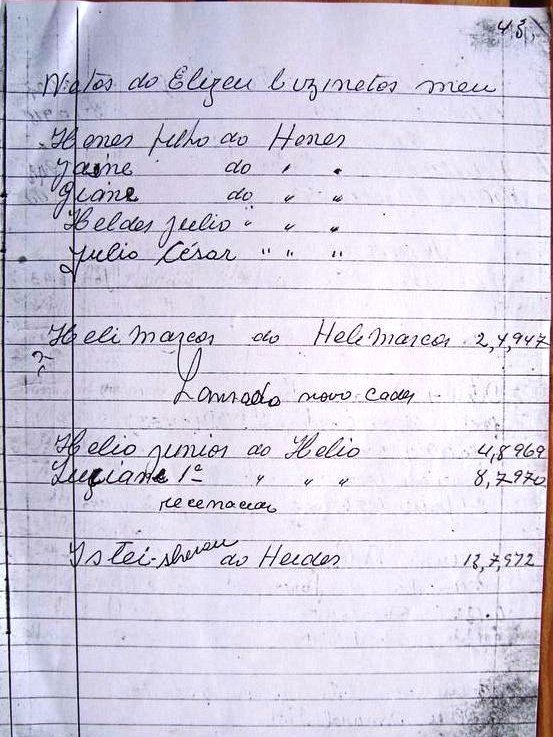 48,
Netos do Elizeu bizinetos meu
Hones filho do Hones
Jaine do " "
Giane do " "
Helder julio " " "
Julio César " " "
Heli Marcos do Heli Marcos 2,4,947
Lansado novo cader
Helio junior do Helio 4,8969
Luciane 1ª " " " 8,7970
do Helder 13,7,972